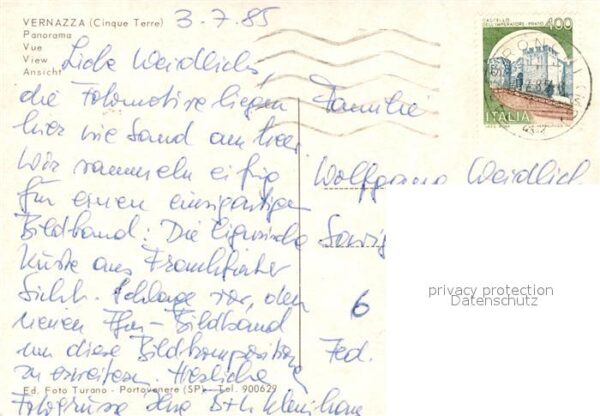 VERNAZZA (Cinque Terre)
Panorama
Vue
View
Ansicht
3.7.85
Liebe Weidlichs,
die Fotomotive liegen
hier wie Sand am Meer.
Wir sammeln eifrig
für einen einzigartigen
Bildband: Die ligurische
Küste aus Frankfurter
Sicht. Schlage vor, den
neuen Bildband
um diese Bildkomposition
zu erweitern. Herzliche
Fotogrüsse Ihre B+H
Ed. Foto Turano - Portovenere (SP) - Tel. 900629
CASTELLO
DELL'IMPERATORE - PRATO
400
ITALIA
Familie
Wolfgang Weidlich
6
privacy protection
Datenschutz